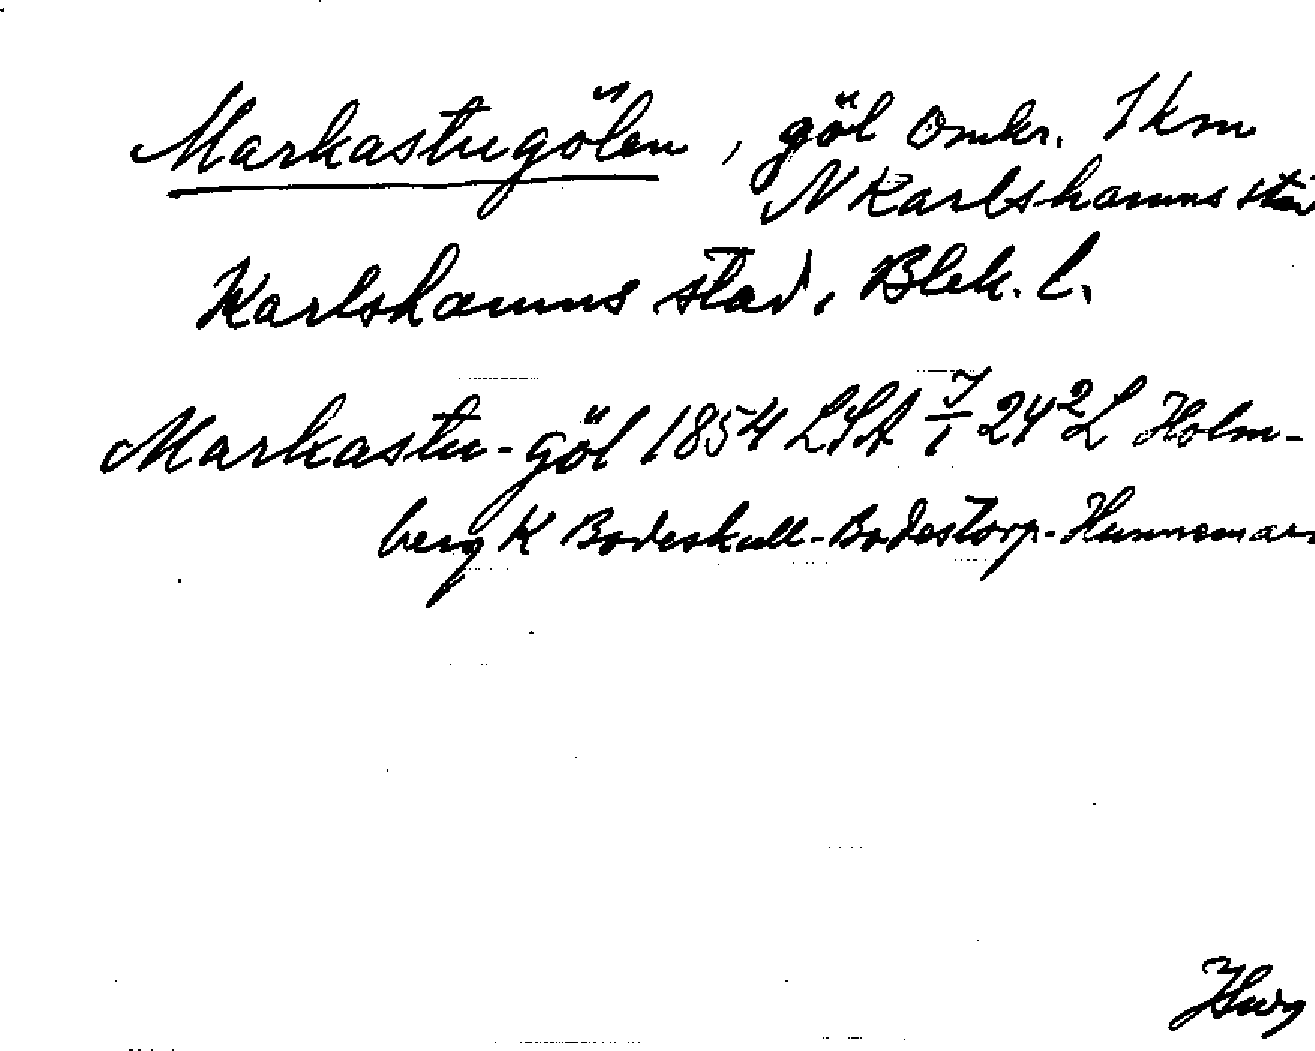 Markastugölen, göl omkr. 1 km
N Karlshamns stav
Karlshamns stad, Blek. l.
Markastu-göl 1854 LSA 7/1 24² L Holm-
berg K Bodeskull-Bodestorp-Hunnemar